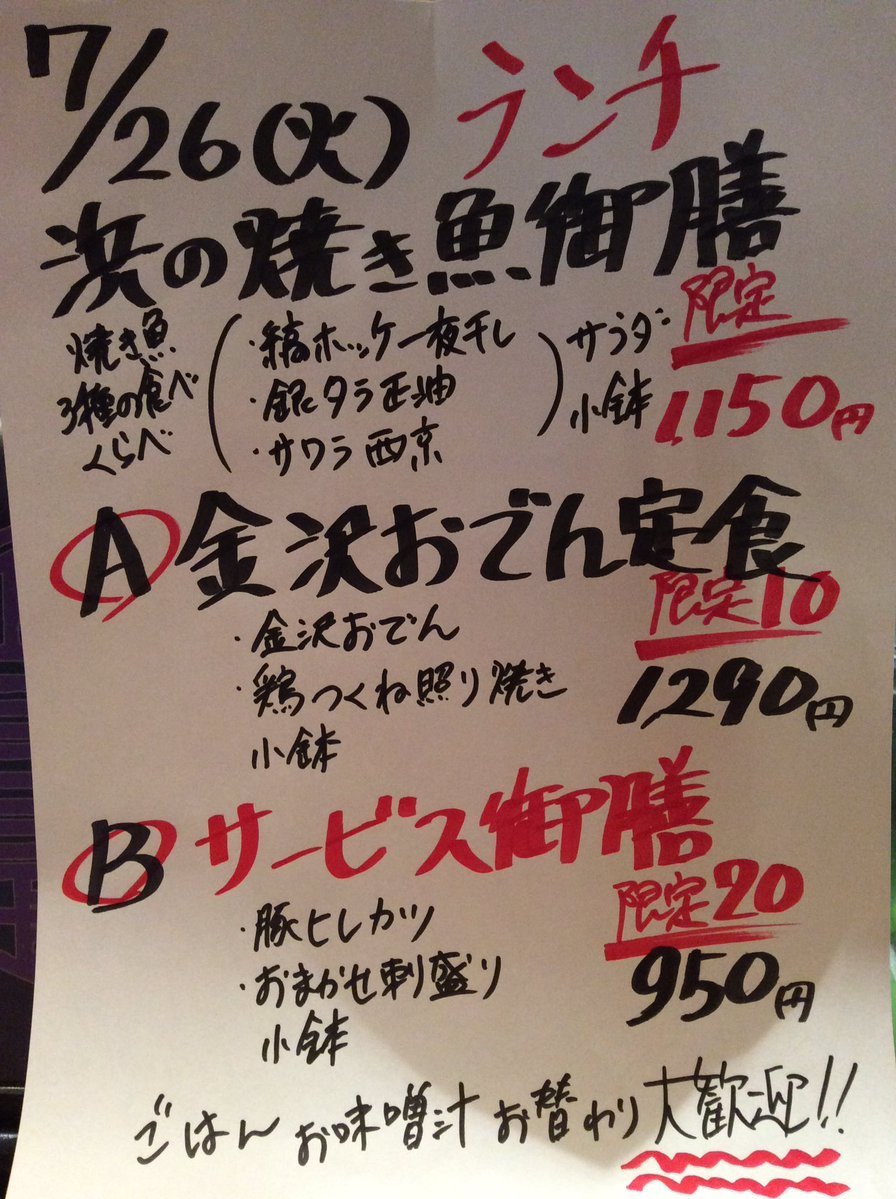 7/26(火) ランチ
浜の焼き魚御膳
限定
焼き魚
3種の食べ
くらべ
・縞ホッケ一夜干し
・銀ダラ正油
・サワラ西京
サラダ
小鉢
1,150円
A 金沢おでん定食
限定10
・金沢おでん
・鶏つくね照り焼き
小鉢
1,290円
B サービス御膳
限定20
・豚ヒレカツ
・おまかせ刺盛り
小鉢
950円
ごはん お味噌汁 お替わり大歓迎!!